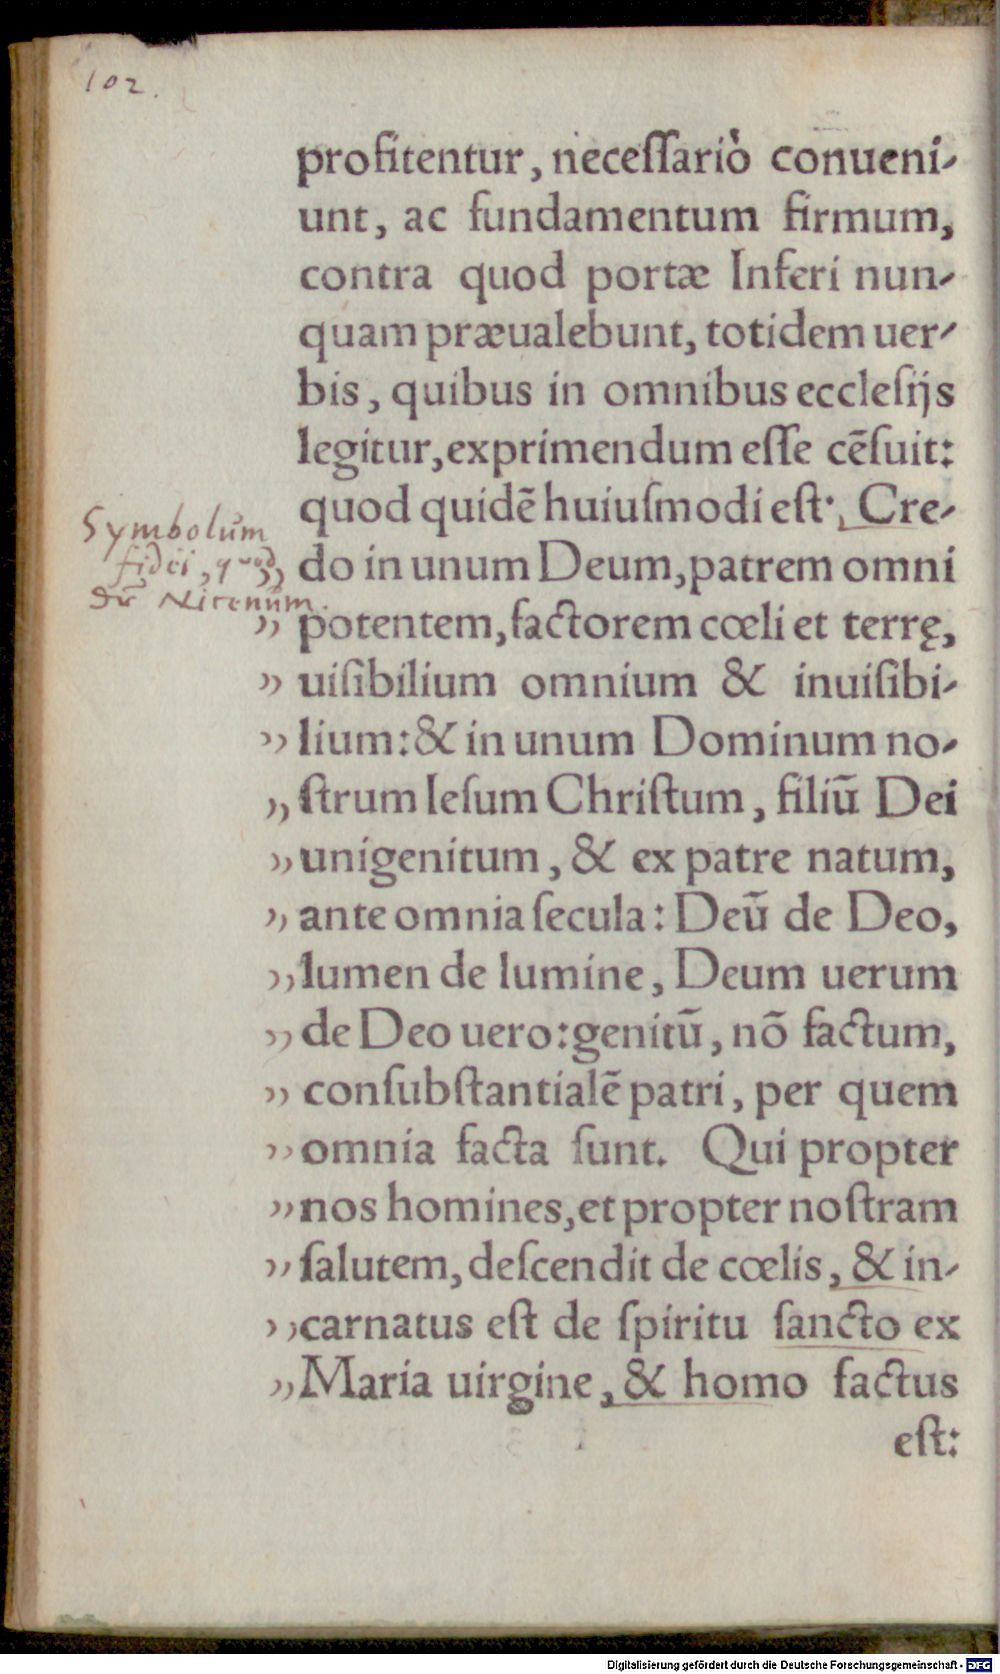 102.
profitentur, neceſſariò conueni-
unt, ac fundamentum firmum,
contra quod portæ Inferi nun-
quam præualebunt, totidem uer-
bis, quibus in omnibus eccleſijs
legitur, exprimendum eſſe cēſuit:
quod quidē huiuſmodi eſt. Cre-
Symbolum
fidei, quod
dr̄ Nicenūm.
„ do in unum Deum, patrem omni
„ potentem, factorem cœli et terrę,
„ uiſibilium omnium & inuiſibi-
„ lium: & in unum Dominum no-
„ ſtrum Ieſum Chriſtum, filiū Dei
„ unigenitum, & ex patre natum,
„ ante omnia ſecula: Deū de Deo,
„ lumen de lumine, Deum uerum
„ de Deo uero: genitū, nō factum,
„ conſubſtantialē patri, per quem
„ omnia facta ſunt. Qui propter
„ nos homines, et propter noſtram
„ ſalutem, deſcendit de cœlis, & in-
„ carnatus eſt de ſpiritu ſancto ex
„ Maria uirgine, & homo factus
eſt:
Digitalisierung gefördert durch die Deutsche Forschungsgemeinschaft - DFG